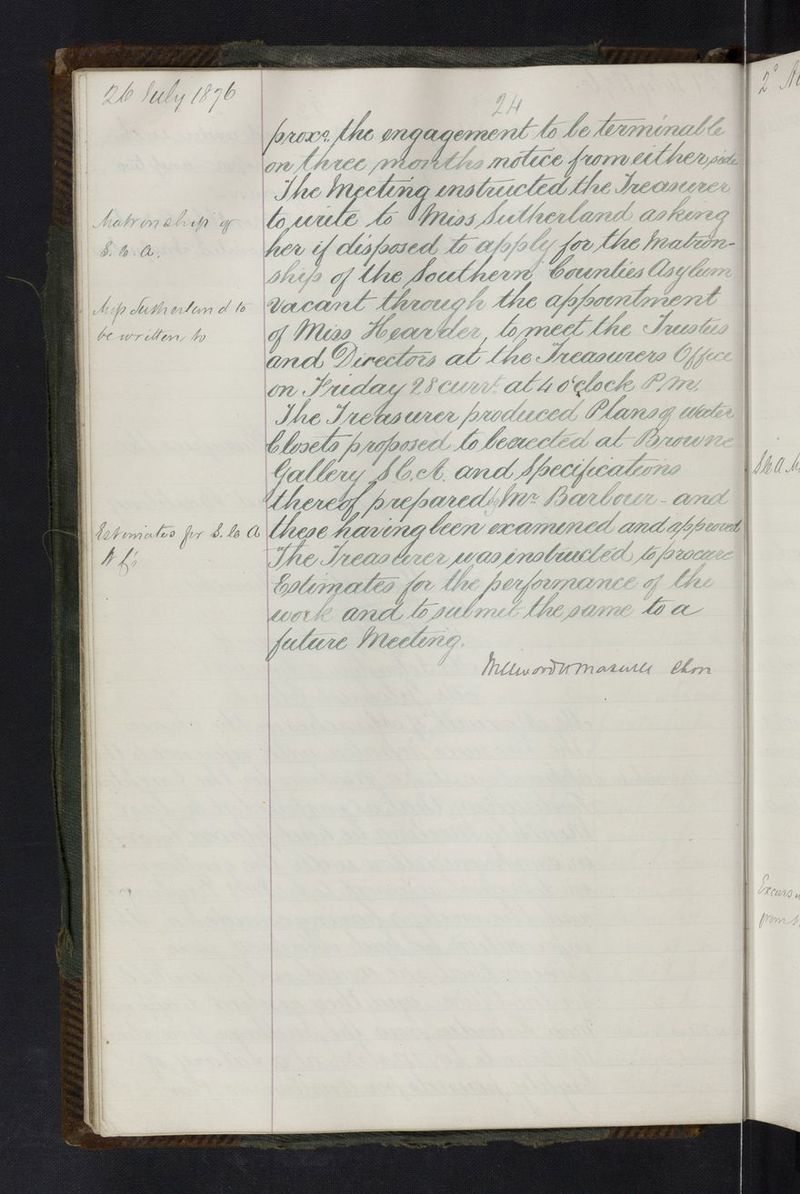 26 July 1876
24
proxo. the engagement to be terminable
on three months notice from either side
The Meeting instructed the Treasurer
Matronship of
to write to Miss Sutherland asking
S. C. A.
her if disposed to apply for the Matron-
ship of the Southern Counties Asylum
Miss Sutherland to
vacant through the appointment
be written to
of Miss Hearder, to meet the Trustees
and Directors at the Treasurers Office
on Friday 28 currt. at 4 o'clock P.M.
The Treasurer produced Plans of Water
Closets proposed to be erected at Browne
Gallery S.C.A. and Specifications
thereof prepared by Mr. Barbour - and
Estimates for S. C. A
these having been examined and approved
The Treasurer was instructed to procure
Estimates for the performance of the
work and to submit the same to a
future Meeting.
Maxwell Chmn
2d
S C A
Excurs
from